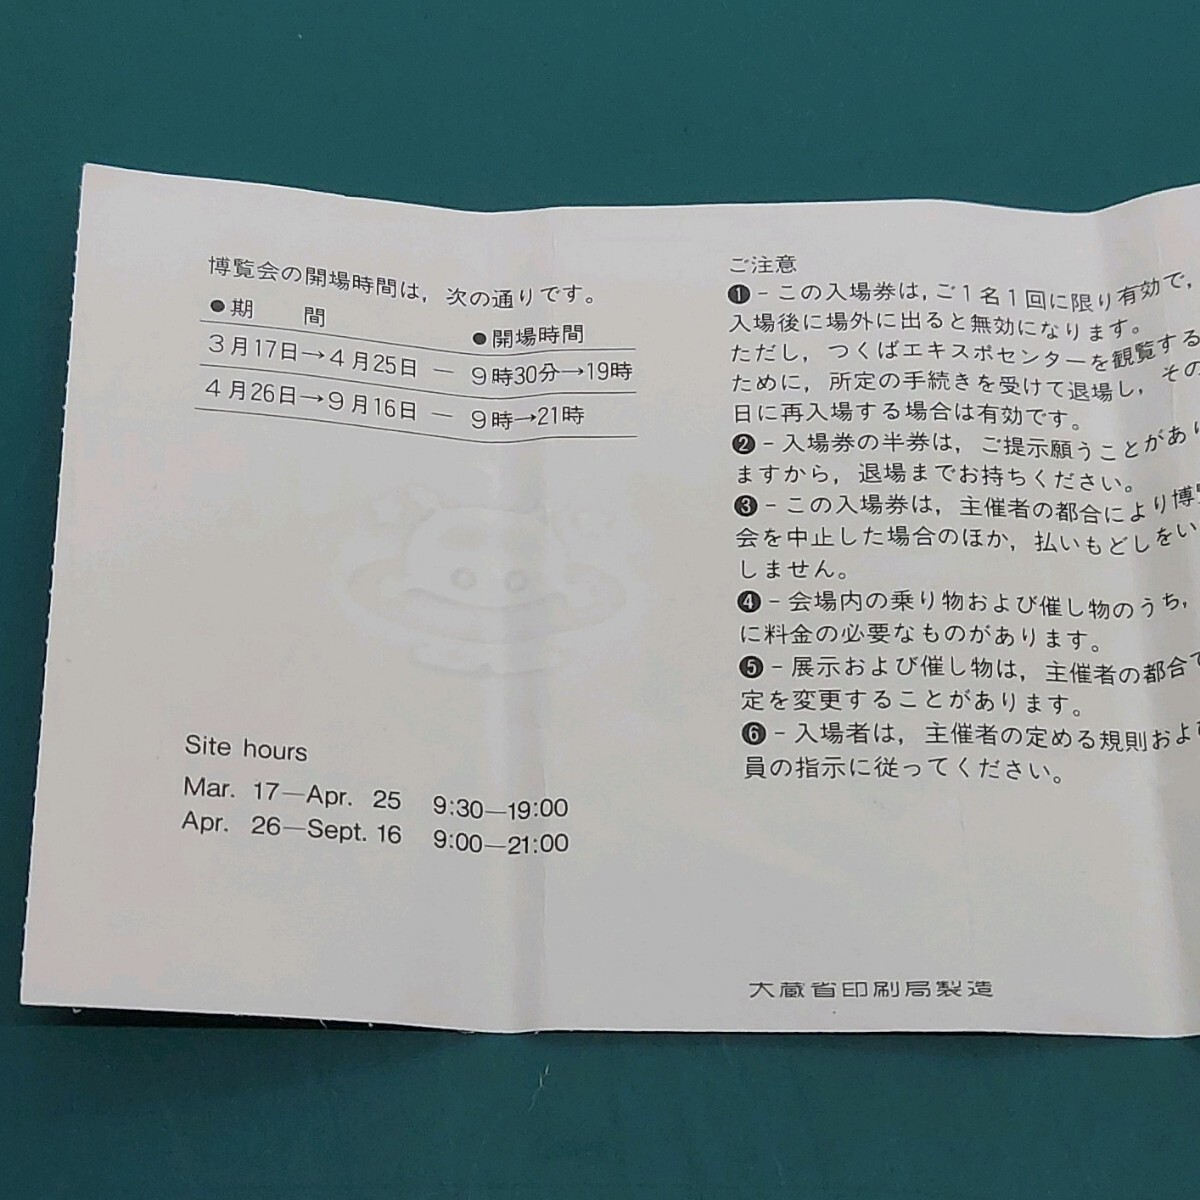 博覧会の開場時間は，次の通りです。
●期　間　●開場時間
3月17日→4月25日 — 9時30分→19時
4月26日→9月16日 — 9時→21時
Site hours
Mar. 17—Apr. 25 9:30—19:00
Apr. 26—Sept. 16 9:00—21:00
ご注意
❶－この入場券は，ご1名1回に限り有効で，
入場後に場外に出ると無効になります。
ただし，つくばエキスポセンターを観覧する
ために，所定の手続きを受けて退場し，その
日に再入場する場合は有効です。
❷－入場券の半券は，ご提示願うことがあり
ますから，退場までお持ちください。
❸－この入場券は，主催者の都合により博覧
会を中止した場合のほか，払いもどしをい
しません。
❹－会場内の乗り物および催し物のうち，
に料金の必要なものがあります。
❺－展示および催し物は，主催者の都合で
定を変更することがあります。
❻－入場者は，主催者の定める規則および
員の指示に従ってください。
大蔵省印刷局製造